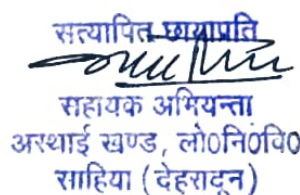 सत्यापित छायाप्रति
सहायक अभियन्ता
अस्थाई खण्ड, लो०नि०वि०
साहिया (देहरादून)